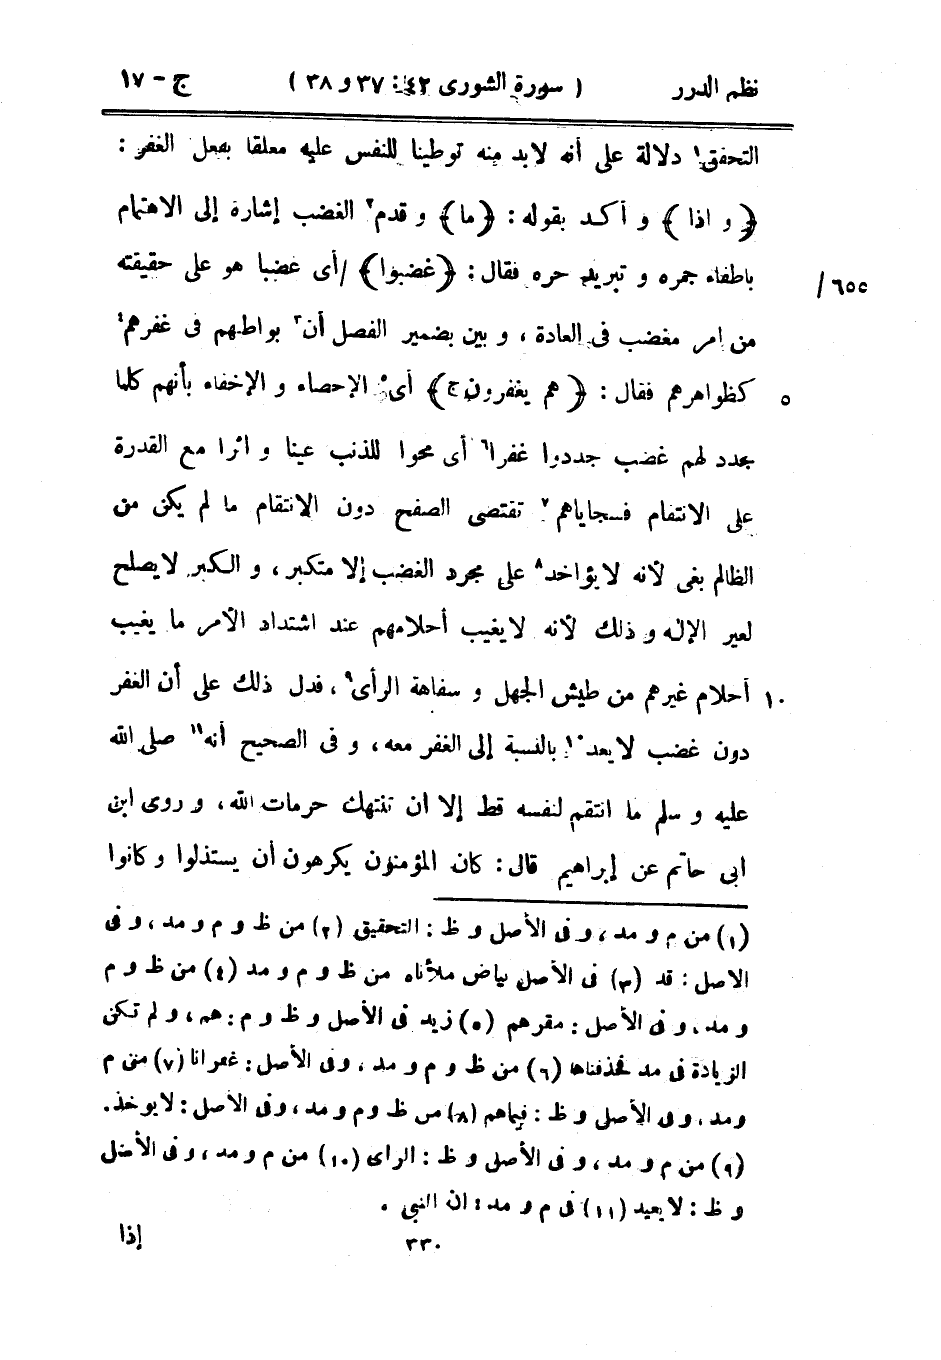 نظم الدرر ( سورة الشورى ٤٢: ٣٧ و ٣٨ ) ج - ١٧
التحقق١ دلالة على أنه لابد منه توطينا للنفس عليه معلقا بفعل الغفر :
﴿ و اذا ﴾ و أكد بقوله : ﴿ ما ﴾ و قدم٢ الغضب إشارة إلى الاهتمام
باطفاء جمره و تبريد حره فقال : ﴿ غضبوا ﴾ / أى غضبا هو على حقيقته
/ ٦٥٥
من امر مغضب فى العادة ، و بين بضمير الفصل أن٣ بواطنهم فى غفرهم٤
٥ كظواهرهم فقال : ﴿ هم يغفرون ج ﴾ أى٥ الإحصاء و الإخفاء بأنهم كلما
تجدد لهم غضب جددوا غفرا٦ أى محوا للذنب عينا و اثرا مع القدرة
على الانتقام فسجاياهم٧ تقتضى الصفح دون الانتقام ما لم يكن من
الظالم بغى لأنه لا يؤاخذ٨ على مجرد الغضب إلا متكبر ، و الكبر لا يصلح
لغير الإله و ذلك لأنه لا يغيب أحلامهم عند اشتداد الأمر ما يغيب
١٠ أحلام غيرهم من طيش الجهل و سفاهة الرأى٩ ، فدل ذلك على أن الغفر
دون غضب لا يعد١٠ بالنسبة إلى الغفر معه ، و فى الصحيح أنه١١ صلى الله
عليه و سلم ما انتقم لنفسه قط إلا ان تنتهك حرمات الله ، و روى ابن
ابى حاتم عن إبراهيم قال : كان المؤمنون يكرهون أن يستذلوا و كانوا
(١) من م و مد ، و فى الأصل و ظ : التحقيق (٢) من ظ و م و مد ، و فى
الاصل : قد (٣) فى الأصل بياض ملأناه من ظ و م و مد (٤) من ظ و م
و مد ، و فى الأصل : مقرهم (٥) زيد فى الأصل و ظ و م : هم ، و لم تكن
الزيادة فى مد فحذفناها (٦) من ظ و م و مد ، و فى الأصل : غفرانا (٧) من م
و مد ، و فى الأصل و ظ : فيماهم (٨) من ظ و م و مد ، و فى الاصل : لا يوخذ .
(٩) من م و مد ، و فى الأصل و ظ : الراى (١٠) من م و مد ، و فى الأصل
و ظ : لا يعيد (١١) فى م و مد : ان النبى .
٣٣٠ إذا